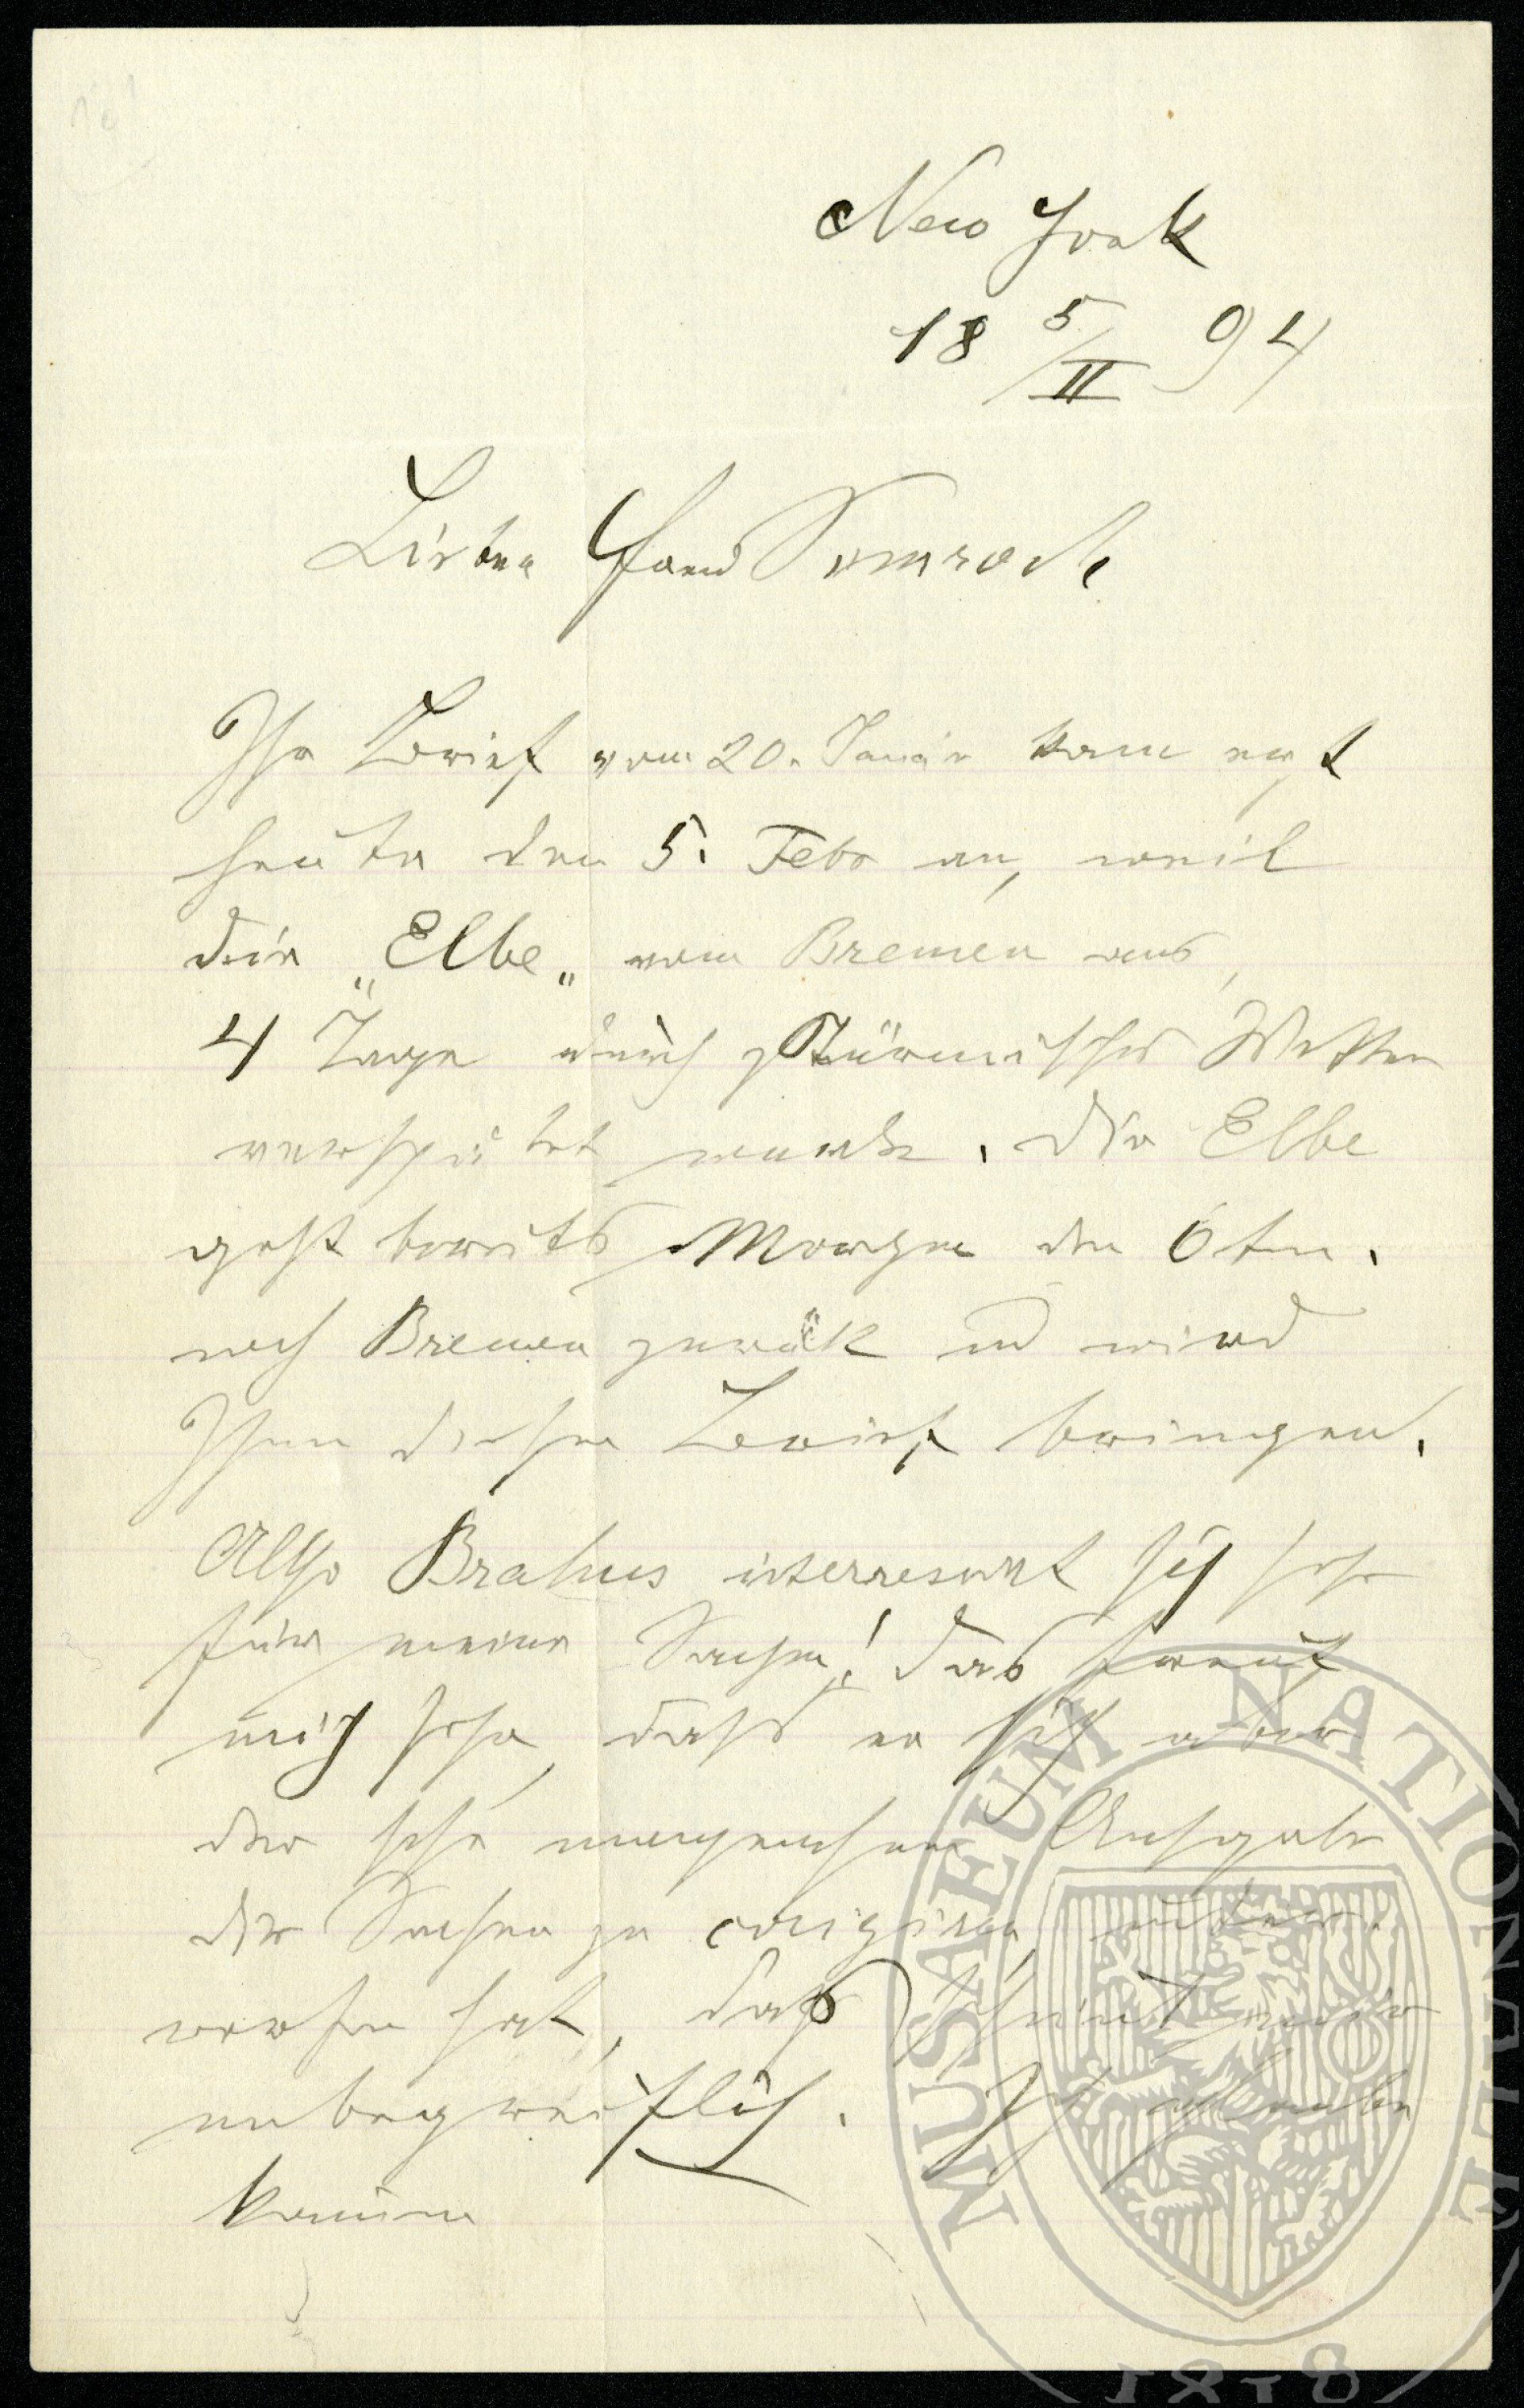 New York
18 5/II 94
Lieber Freund Simrock
Ihr Brief vom 20. Januar kam erst
heute den 5. Febr an, weil
die „Elbe„ von Bremen aus,
4 Tage durch stürmisches Wetter
verspätet wurde. Die Elbe
geht bereits Morgen den 6ten.
nach Bremen zurück und wird
Ihnen diesen Brief bringen.
Also Brahms interresirt sich sehr
für meine Sachen! Das freut
mich sehr, dass er sich aber
der sehr unangenehmen Aufgabe
die Sachen zu corrigiren, unter
worfen hat, dass scheint mir
unbegreiflich. Ich glaube
kaum
MUSAEUM NATIONALE
1818